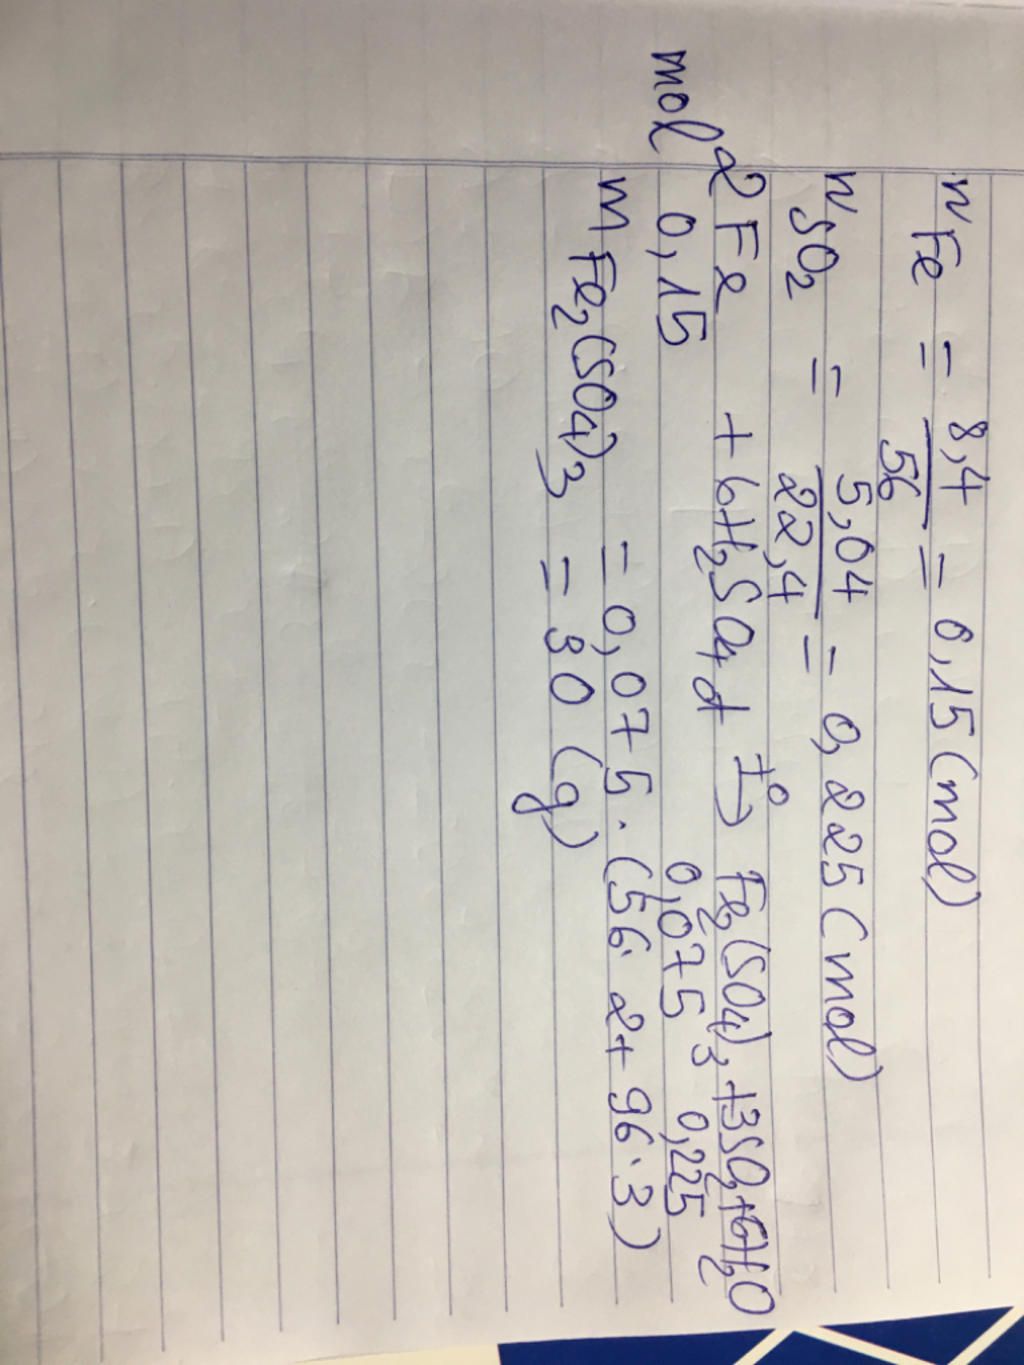 n Fe = 8,4 / 56 = 0,15 (mol)
n SO2 = 5,04 / 22,4 = 0,225 (mol)
2Fe + 6H2SO4 đ t° → Fe2(SO4)3 + 3SO2 + 6H2O
mol 0,15 0,075 0,225
m Fe2(SO4)3 = 0,075 . (56. 2 + 96.3)
= 30 (g)